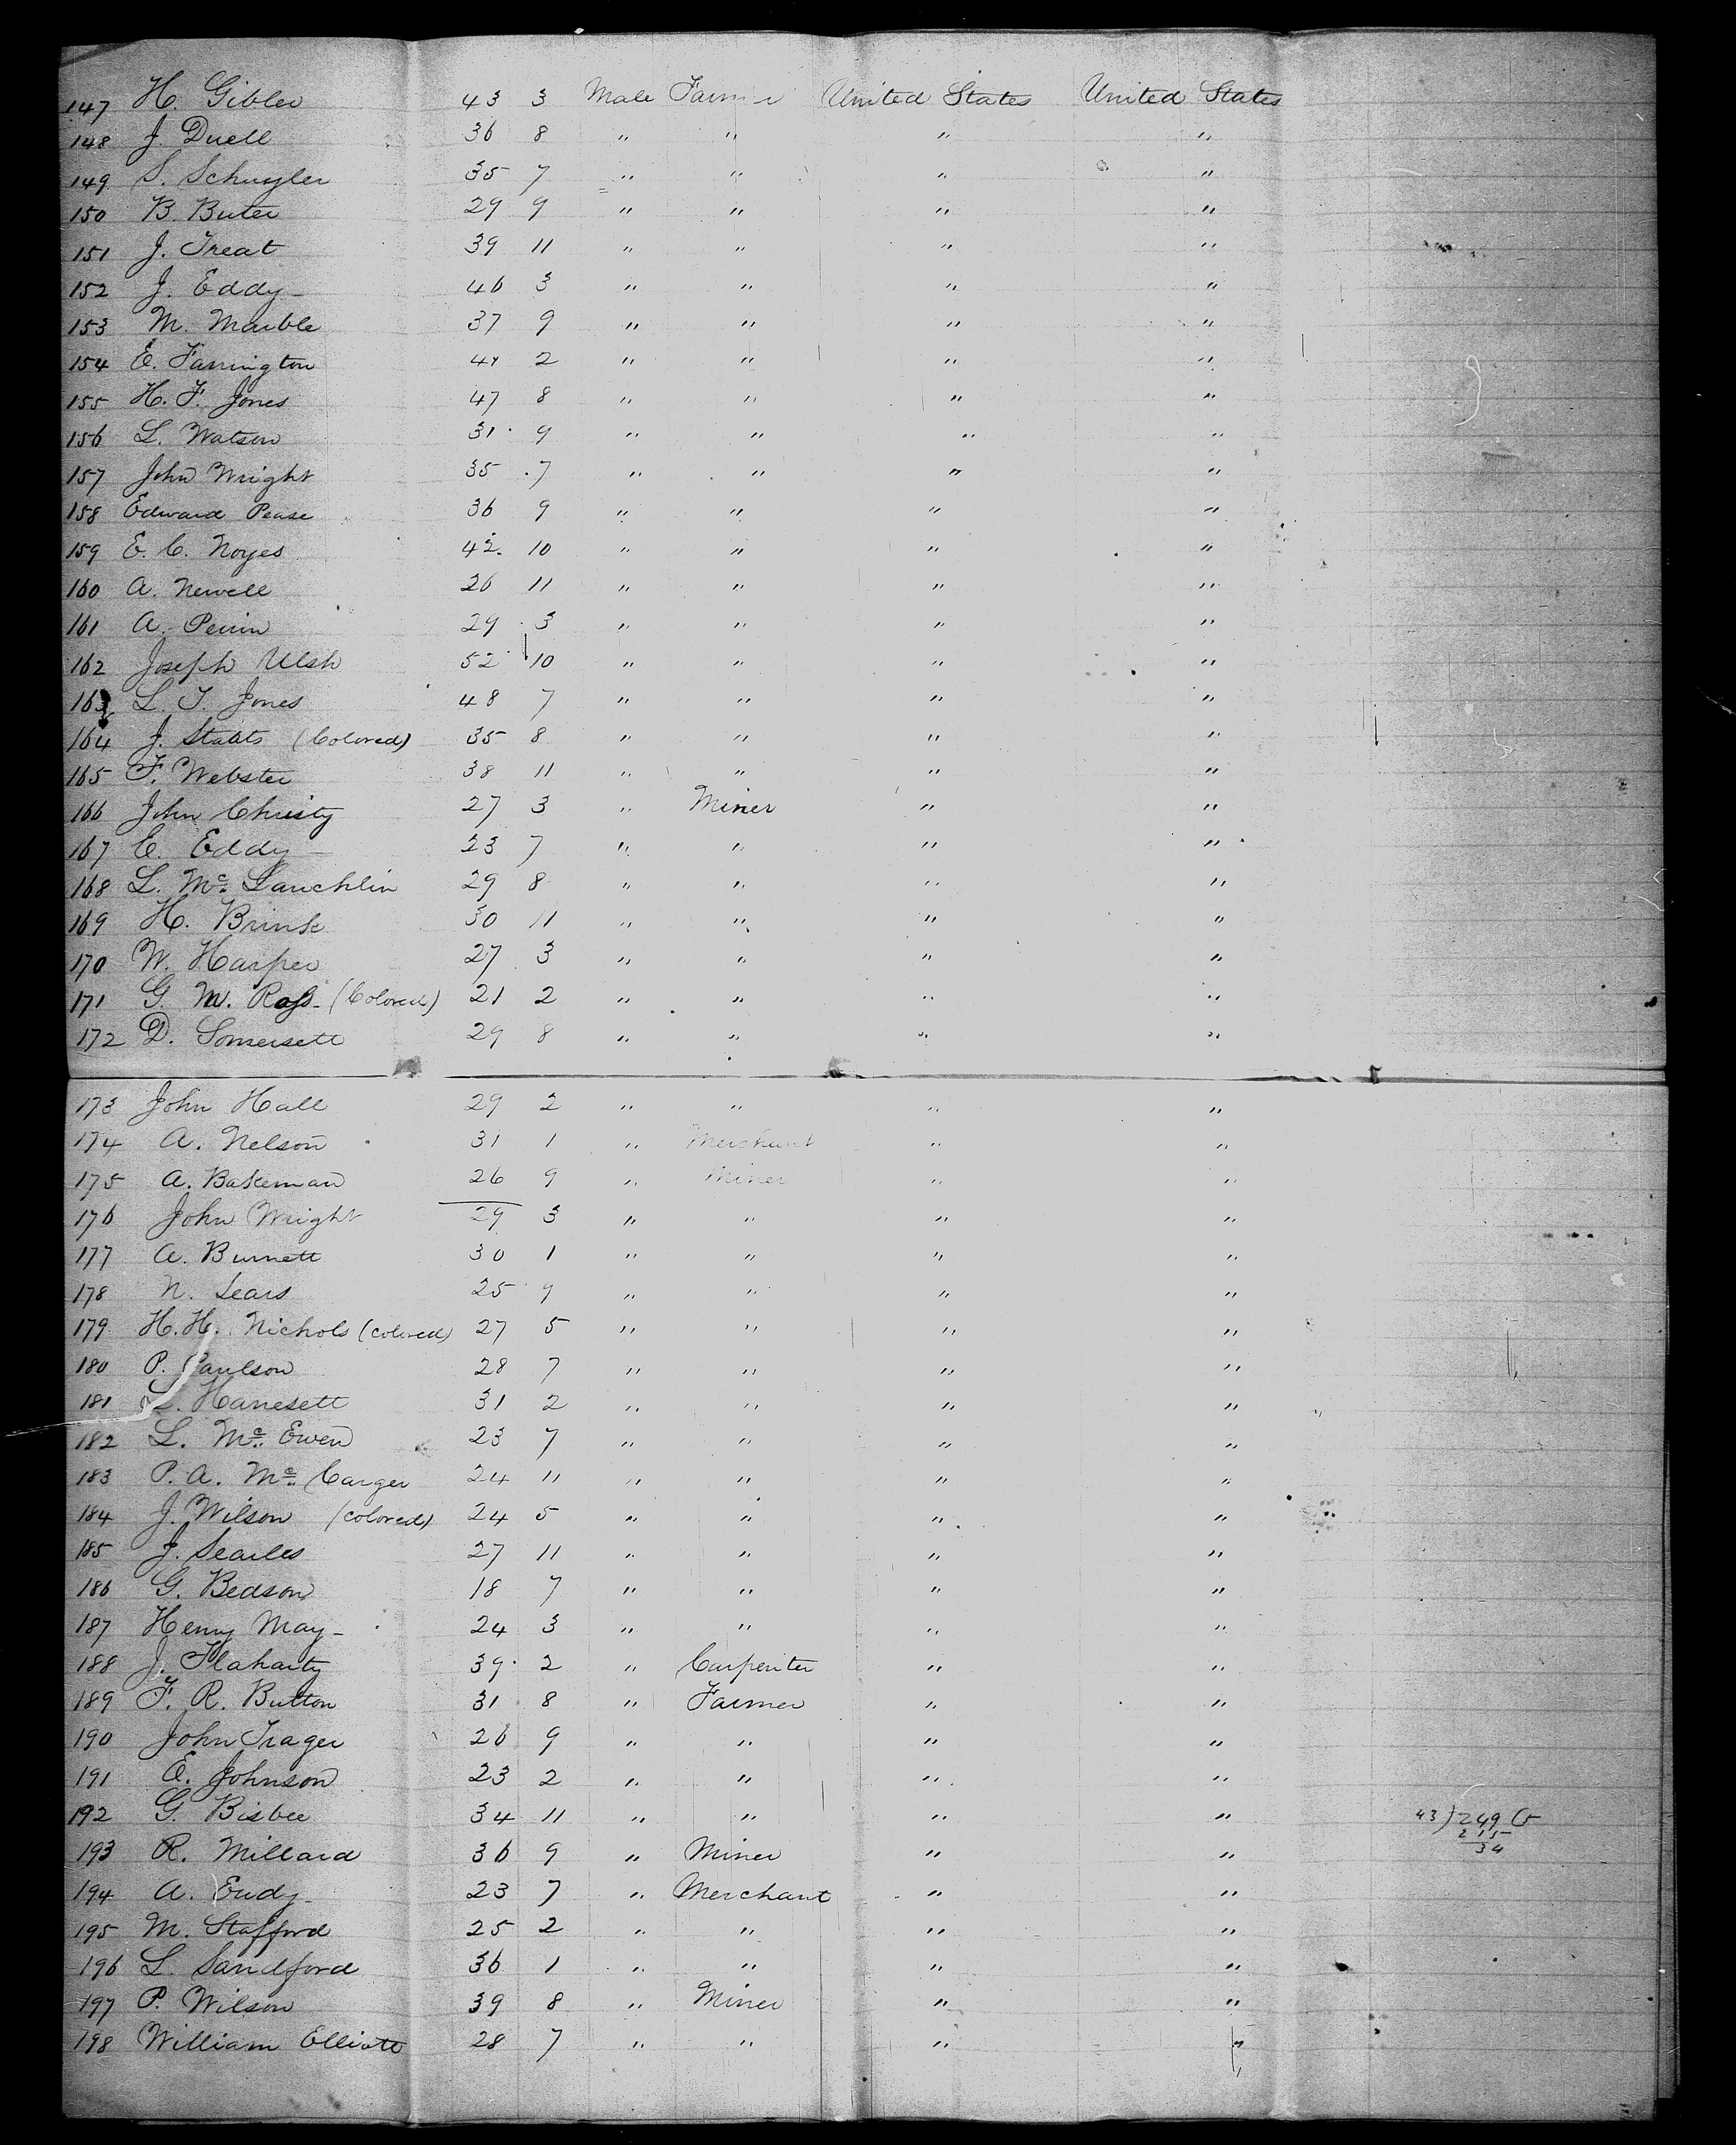 147 H. Gibler 43 3 Male Farmer United States United States
148 J. Duell 36 8 " " " "
149 S. Schuyler 35 7 " " " "
150 B. Buter 29 9 " " " "
151 J. Treat 39 11 " " " "
152 J. Eddy 46 3 " " " "
153 M. Marble 37 9 " " " "
154 E. Farrington 2 " " " "
155 H. F. Jones 47 8 " " " "
156 L. Watson 31 9 " " " "
157 John Wright 35 7 " " " "
158 Edward Pease 36 9 " " " "
159 E. C. Noyes 42 10 " " " "
160 A. Newell 26 11 " " " "
161 A. Perrin 29 3 " " " "
162 Joseph Ulsh 52 10 " " " "
163 L. T. Jones 48 7 " " " "
164 J. Staats (Colored) 35 8 " " " "
165 F. Webster 38 11 " " " "
166 John Christy 27 3 " Miner " "
167 C. Eddy 23 7 " " " "
168 L. Mc. Lauchlin 29 8 " " " "
169 H. Brink 30 11 " " " "
170 W. Harper 27 3 " " " "
171 G. M. Ross (Colored) 21 2 " " " "
172 D. Somersett 29 8 " " " "
173 John Hall 29 2 " " " "
174 A. Nelson 31 1 " Merchant " "
175 A. Bakeman 26 9 " Miner " "
176 John Wright 29 3 " " " "
177 A. Burnett 30 1 " " " "
178 N. Sears 25 9 " " " "
179 H. H. Nichols (colored) 27 5 " " " "
180 P. Paulson 28 7 " " " "
181 L. Hanesett 31 2 " " " "
182 L. Mc. Ewen 23 7 " " " "
183 P. A. Mc. Carger 24 11 " " " "
184 J. Wilson (colored) 24 5 " " " "
185 J. Searles 27 11 " " " "
186 G. Bedson 18 7 " " " "
187 Henry May 24 3 " " " "
188 J. Flaharty 39 2 " Carpenter " "
189 F. R. Button 31 8 " Farmer " "
190 John Trager 26 9 " " " "
191 E. Johnson 23 2 " " " "
192 G. Bisbee 34 11 " " " " 43) 249 (5
215
34
193 R. Millard 36 9 " Miner " "
194 A. Eudy 23 7 " Merchant " "
195 M. Stafford 25 2 " " " "
196 L. Sandford 36 1 " " " "
197 P. Wilson 39 8 " Miner " "
198 William Elliott 28 7 " " " "